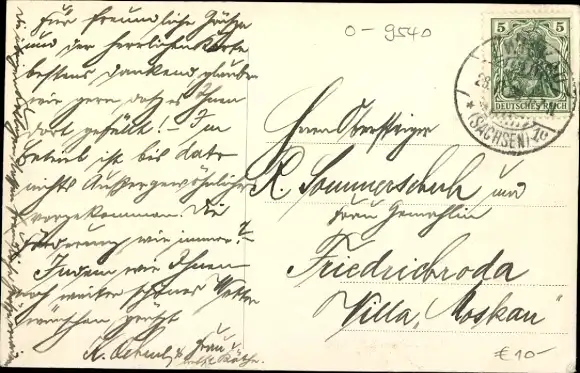 Für freundliche Grüße
und der herrlichen Karte
bestens dankend, glauben
wir gern, daß es Ihnen
dort gefällt! – Im
Betrieb ist bis dato
nichts Außergewöhnliches
vorgekommen. Die
Förderung wie immer!
Indem wir Ihnen
noch weiter schönes Wetter
wünschen grüßt
Frau
nebst Käthe.
0-9540
5 5
DEUTSCHES REICH
(SACHSEN)
Herrn Obersteiger
R. Sommerschuh und
Frau Gemahlin
Friedrichroda
Villa „Moskau"
€ 10-